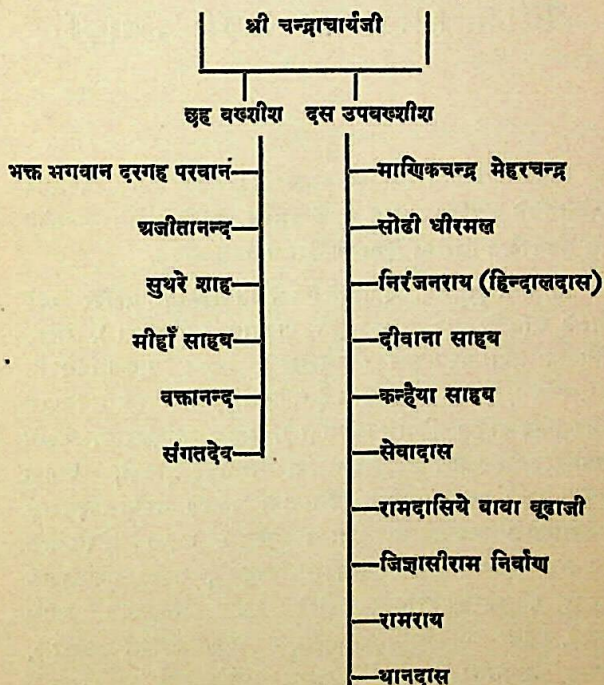 श्री चन्द्राचार्यजी
छह बख्शीश दस उपबख्शीश
भक्त भगवान दरगह परवान
अजीतानन्द
सुथरे शाह
मीहाँ साहब
वक्तानन्द
संगतदेव
माणिकचन्द्र मेहरचन्द्र
सोढी धीरमल
निरंजनराय (हिन्दालदास)
दीवाना साहब
कन्हैया साहब
सेवादास
रामदासिये बाबा बूढाजी
जिज्ञासीराम निर्वाण
रामराय
थानदास